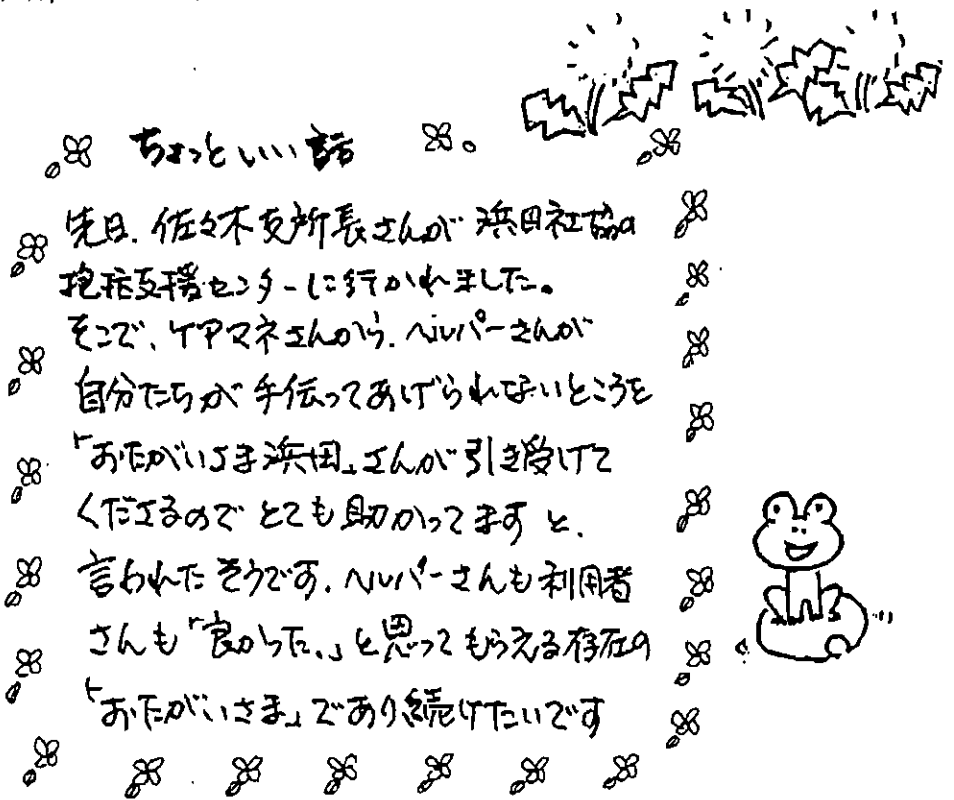 ちょっといい話
先日、佐々木支所長さんが 浜田社協の
包括支援センターに行かれました。
そこで、ケアマネさんから、ヘルパーさんが
自分たちが手伝ってあげられないところを
「おたがいさま浜田」さんが引き受けて
くださるので とても助かってます と、
言われたそうです。ヘルパーさんも利用者
さんも「良かった、」と思ってもらえる存在の
「おたがいさま」であり続けたいです